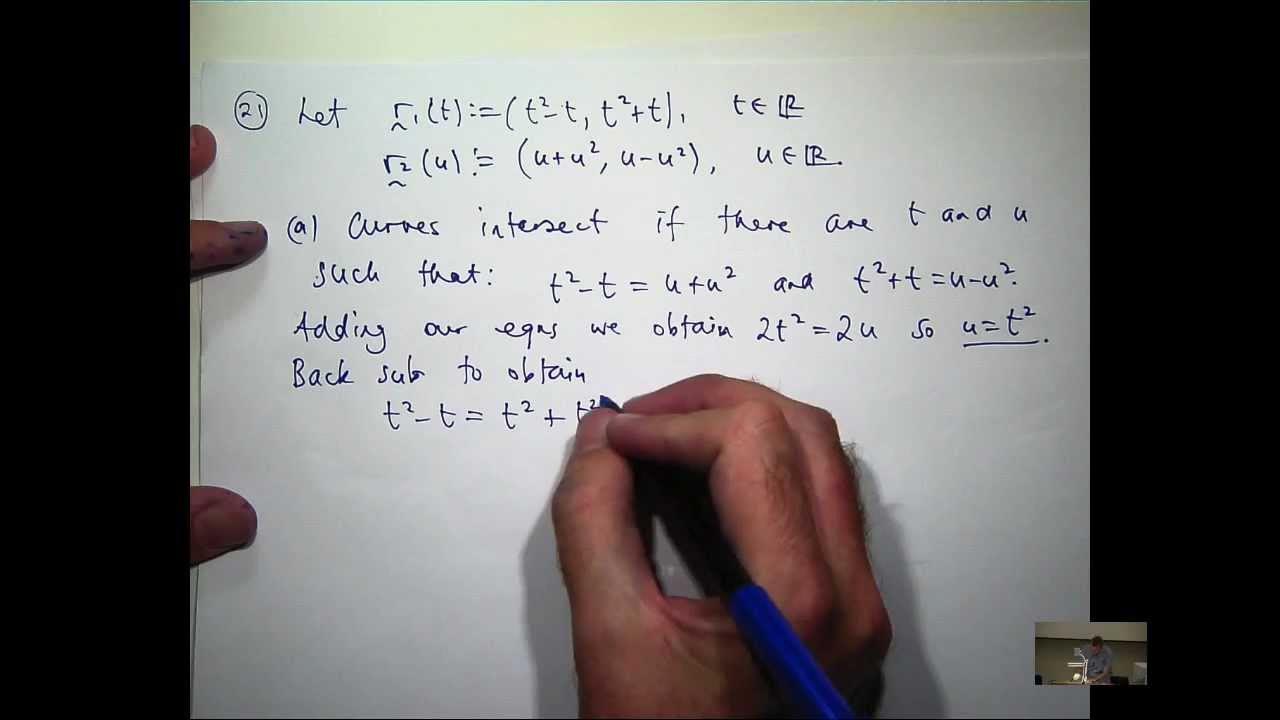 (21) Let r₁(t) := (t²-t, t²+t), t∈ℝ
r₂(u) := (u+u², u-u²), u∈ℝ.
(a) Curves intersect if there are t and u
such that: t²-t = u+u² and t²+t = u-u².
Adding our eqns we obtain 2t² = 2u so u=t².
Back sub to obtain
t²-t = t² + t²